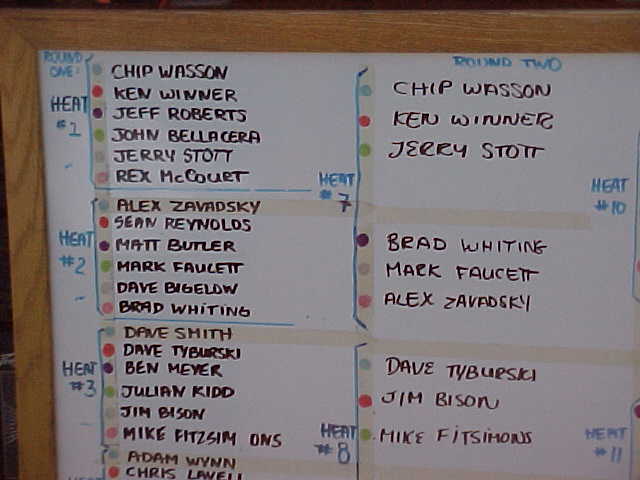 ROUND
ONE:
HEAT
#1
CHIP WASSON
KEN WINNER
JEFF ROBERTS
JOHN BELLACERA
JERRY STOTT
REX McCOURT
HEAT
#2
ALEX ZAVADSKY
SEAN REYNOLDS
MATT BUTLER
MARK FAUCETT
DAVE BIGELOW
BRAD WHITING
HEAT
#3
DAVE SMITH
DAVE TYBURSKI
BEN MEYER
JULIAN KIDD
JIM BISON
MIKE FITZSIM ONS
ADAM WYNN
CHRIS LAVELL
ROUND TWO
HEAT
#7
CHIP WASSON
KEN WINNER
JERRY STOTT
BRAD WHITING
MARK FAUCETT
ALEX ZAVADSKY
HEAT
#8
DAVE TYBURSKI
JIM BISON
MIKE FITSIMONS
HEAT
#10
HEAT
#11